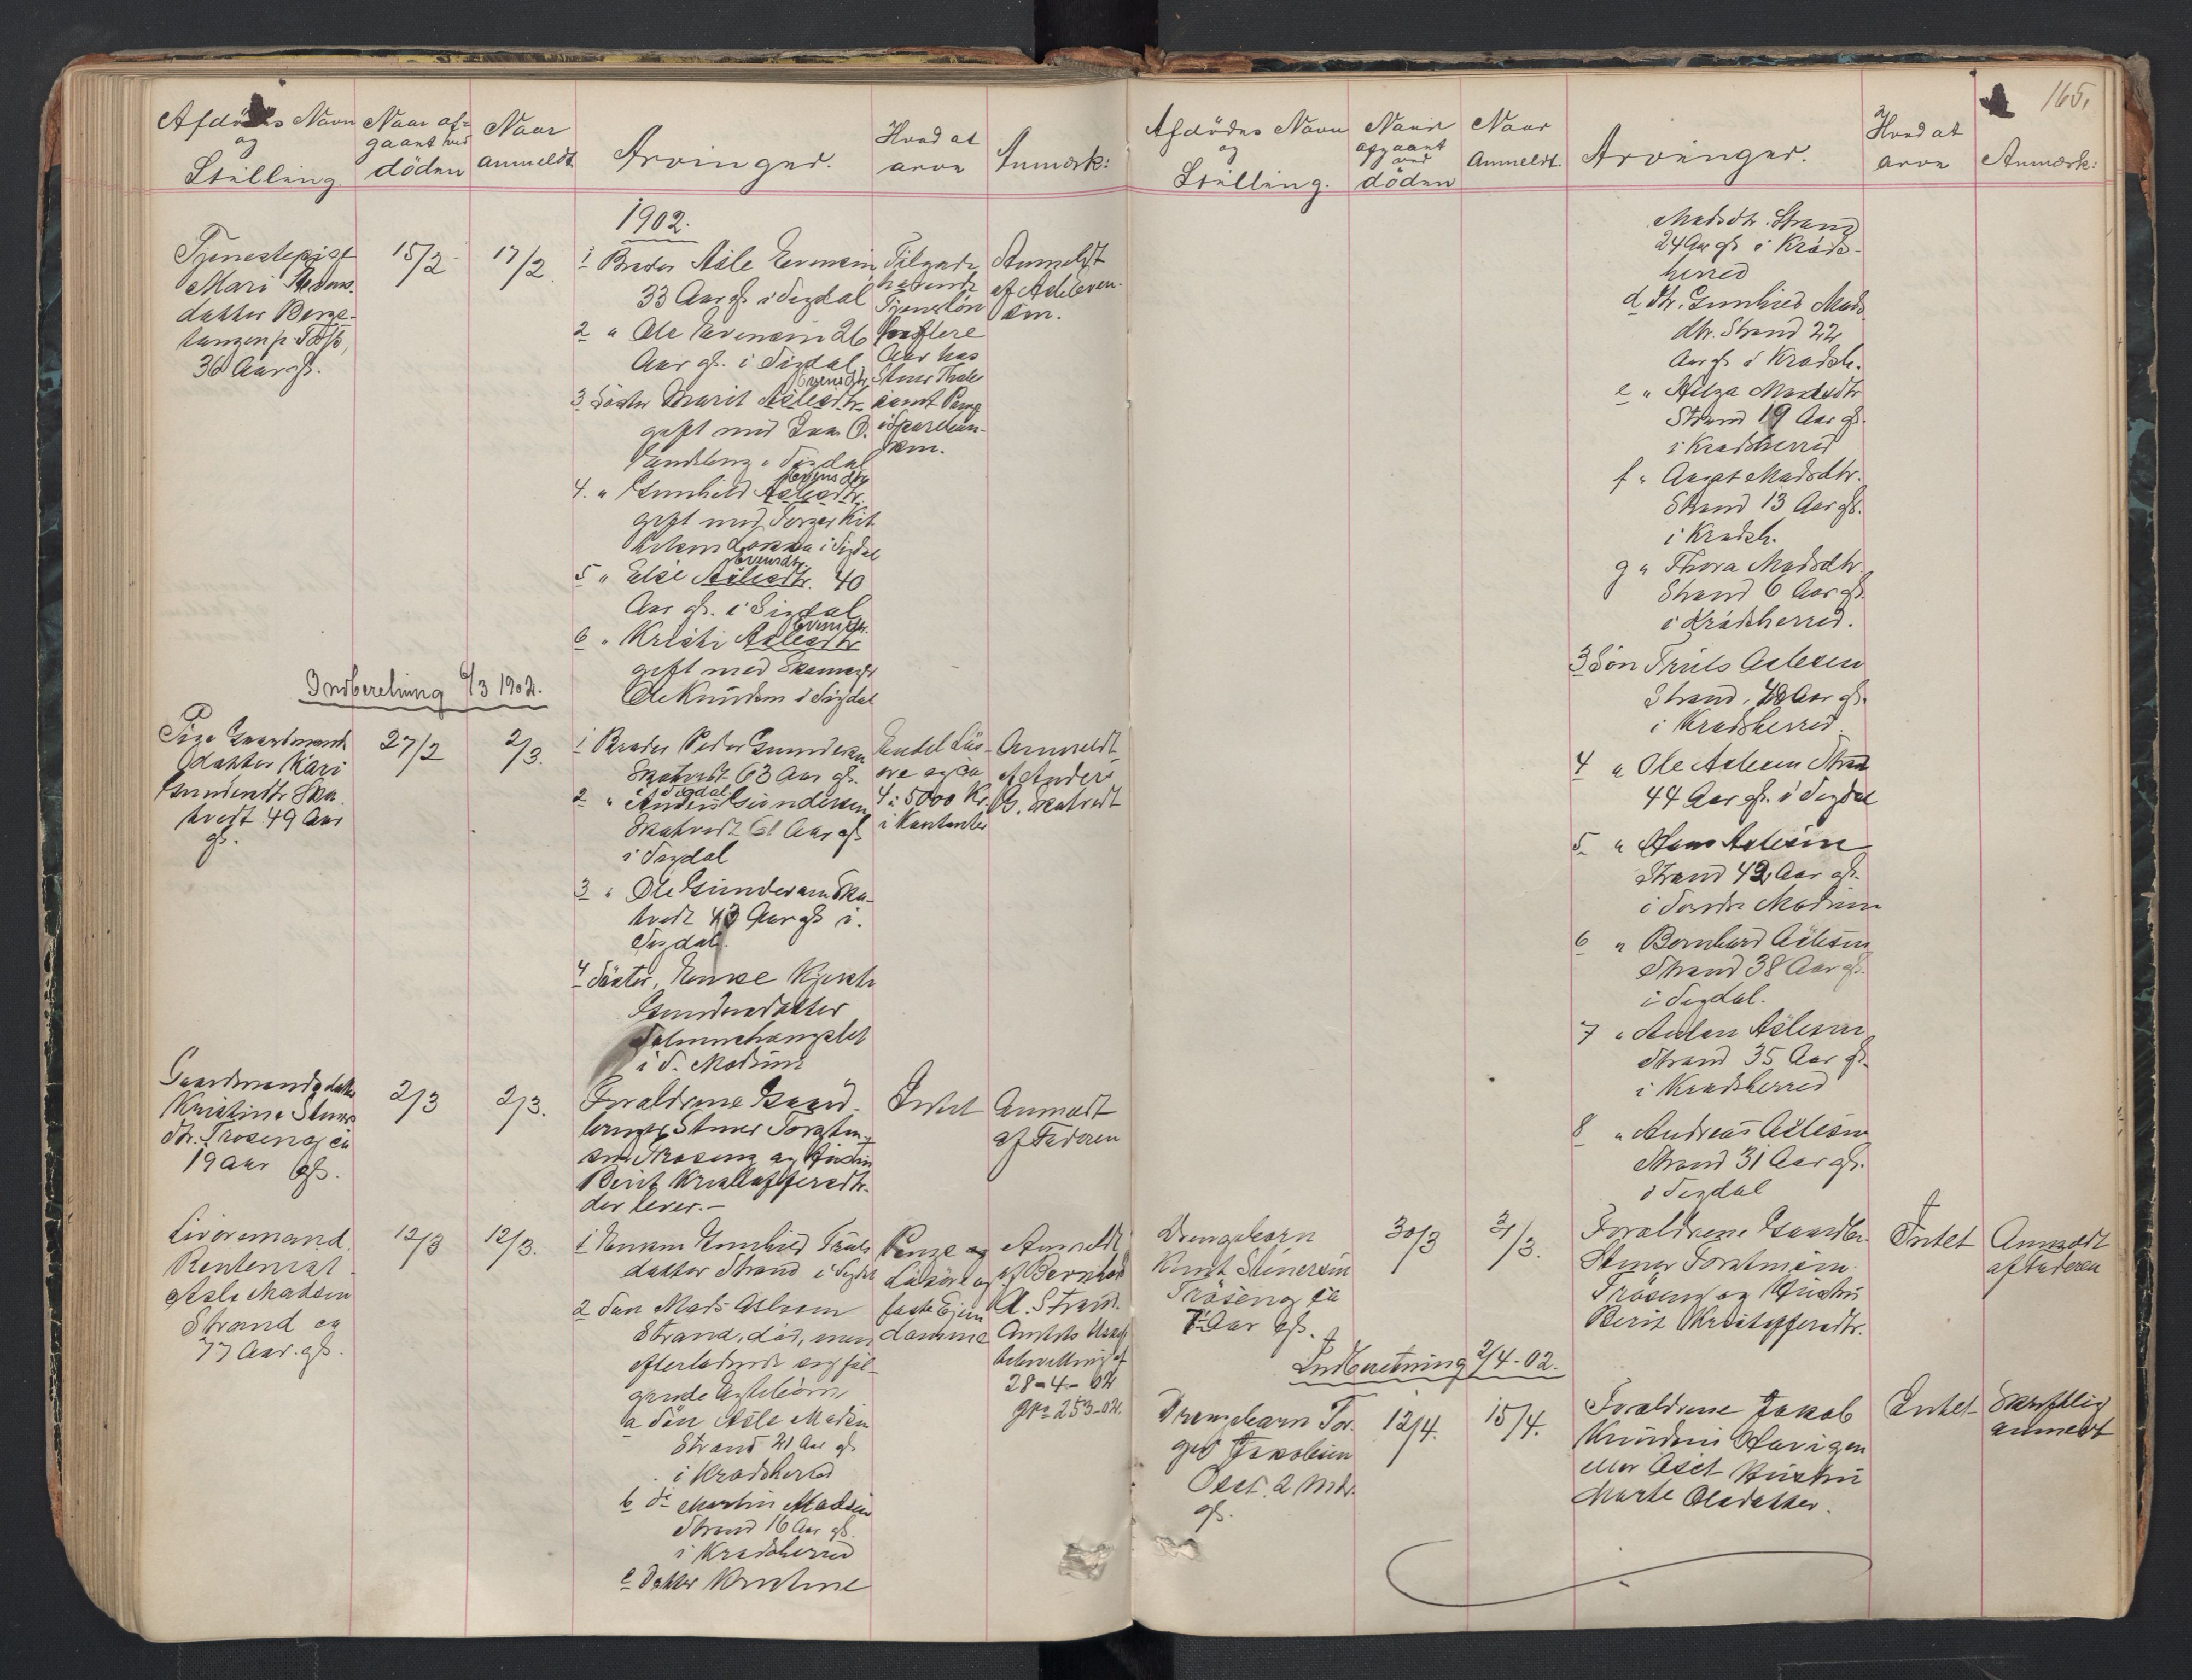 Afdödes Navn
og
Stilling.
Naar af-
gaaet ved
döden
Naar
anmeldt
Arvinger.
Hvad at
arve
Anmærk:
1902.
Tjenestepige
Mari Evens-
datter Berge-
tangen p. T.
36 Aar gl.
15/2
17/2
1 Broder Asle Evensen
33 Aar gl. i Sigdal
2 " Ole Evensen 26
Aar gl. i Sigdal
Evensdtr.
3 Söster Marit Aslesdtr.
gift med O.
i Sigdal
Evensdtr.
4. " Gunhild Aslesdtr.
gift med Torger Kit
i Sigdal
Evensdtr.
5 " Else Aslesdtr. 40
Aar gl. i Sigdal
Evensdtr.
6 " Kristi Aslesdtr.
gift med Skomager
Ole Knudsen i Sigdal
Tilgode
havende
Tjenestlön
for flere
Aar hos
Stener Thale
samt Peng
i Spareban-
ken.
Anmeldt
af Asle Even-
sen.
Indberetning 6/3 1902.
Pige Gaardmands
datter Kari
Gundersdtr Ska-
tvedt 49 Aar
gl.
27/2
2/3.
1 Broder Peder Gundersen
Skatvedt 63 Aar gl.
i Sigdal
2 " Anders Gundersen
Skatvedt 61 Aar gl.
i Sigdal
3 " Ole Gundersen Ska-
tvedt 43 Aar gl. i
Sigdal.
4 Söster, Enke Kjersti
Gundersdatter
i S. Modum
Endel Lös-
øre og ca
4 à 5000 Kr.
i Kontanter
Anmeldt
af Anders
G. Skatvedt
Gaardmandsdatter
Kristine Steners
dtr. Tröseng ca
19 Aar gl.
2/3
2/3.
Forældrene Gaard-
bruger Stener Torsten-
sen Tröseng og Hustru
Berit Kristoffersdtr.
der lever. -
Intet
Anmeldt
af Faderen
Livöremand
Rentenist
Asle Madsen
Strand ca
77 Aar. gl.
12/3
12/3.
1 Enken Gunhild Truls
datter Strand i Sigdal
2 Sön Mads Aslesen
Strand, död, men
efterladende sig föl-
gende Ægtebörn
a Sön Asle Madsen
Strand 21 Aar gl.
i Krødsherred
b do Martin Madsen
Strand 16 Aar gl.
i Krødsherred
c Datter Kristine
Penge og
Lösöre og
faste Ejen-
domme
Anmeldt
af Bernhard
A. Strand.
Amtets
af
28-4-02
253-02.
165.
Afdödes Navn
og
Stilling.
Naar
afgaaet
ved
döden
Naar
Anmeldt.
Arvinger.
Hvad at
arve
Anmærk:
Madsdtr. Strand
24 Aar gl. i Kröds-
herred
d Dtr. Gunhild Mads
dtr. Strand 22
Aar gl. i Krödsh.
e " Helga Madsdtr
Strand 19 Aar gl.
i Krødsherred
f " Aagot Madsdtr.
Strand 13 Aar gl.
i Krødsh.
g " Thora Madsdtr.
Strand 6 Aar gl.
i Krødsherred.
3 Sön Truls Aslesen
Strand, 48 Aar gl.
i Krødsherred
4 " Ole Aslesen Strand
44 Aar gl. i Sigdal
5 " Hans Aslesen
Strand 42 Aar gl.
i Söndre Modum
6 " Bernhard Aslesen
Strand 38 Aar gl.
i Sigdal.
7 " Anton Aslesen
Strand 35 Aar gl.
i Krødsherred
8 " Andreas Aslesen
Strand 31 Aar gl.
i Sigdal
Drengebarn
Knut Stenersen
Tröseng ca
7 Aar gl.
30/3
31/3.
Forældrene Gaardbr.
Stener Torstensen
Tröseng og Hustru
Berit Kristoffersdtr.
Intet
Anmeldt
af Faderen
Indberetning 2/4-02.
Drengebarn Tor-
ger Jakobsen
Oset. 2 Mdr.
gl.
12/4.
15/4.
Forældrene Jakob
Knudsen
eller Oset Hustru
Marte Olsdatter.
Intet
Skriftlig
anmeldt